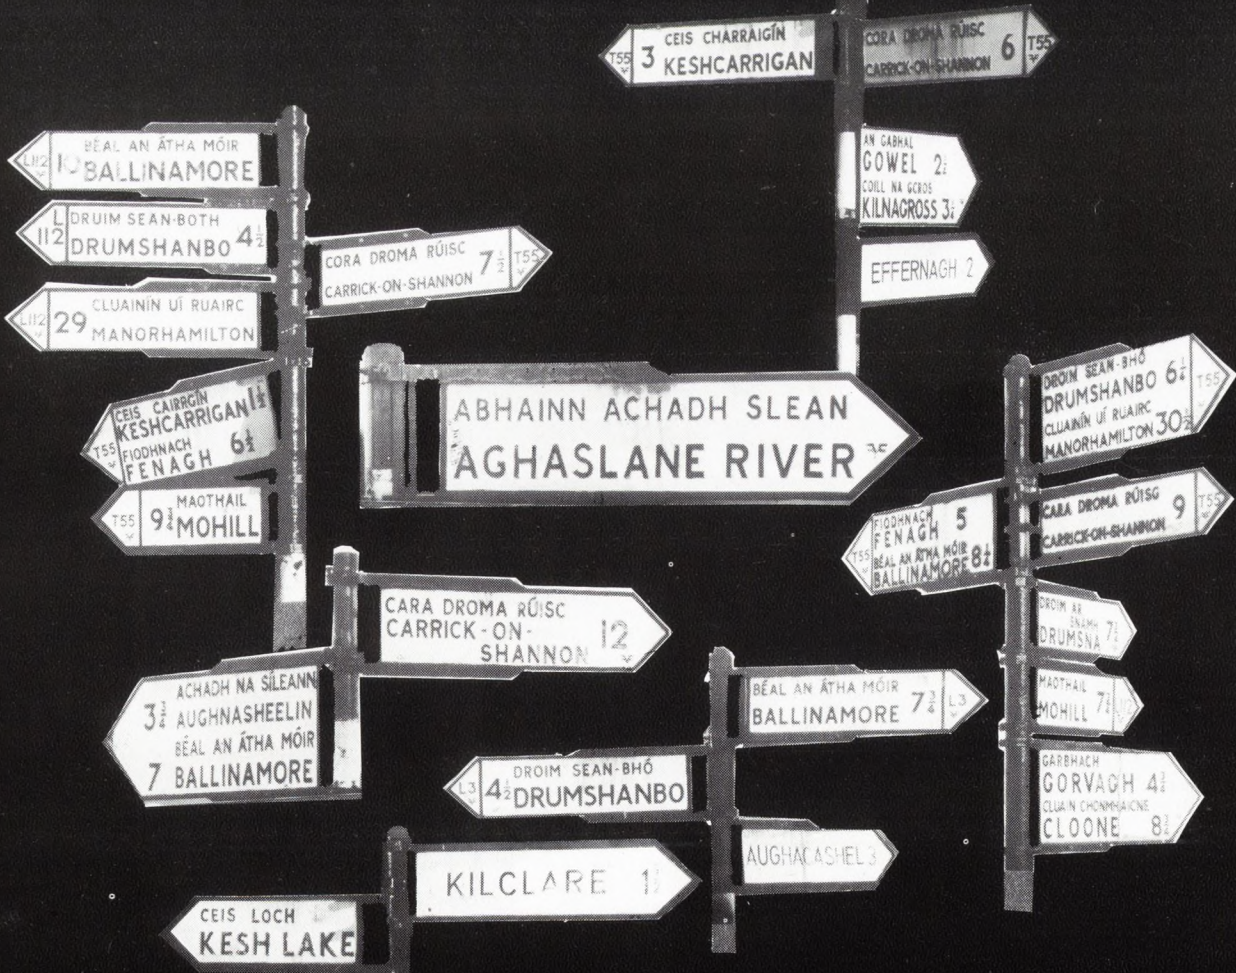 T55 3 CEIS CHARRAIGÍN
KESHCARRIGAN
CORA DROMA RÚISC
CARRICK-ON-SHANNON 6 T55
AN GABHAL
GOWEL 2½
COILL NA GCROS
KILNAGROSS 3
EFFERNAGH 2
L112 10 BÉAL AN ÁTHA MÓIR
BALLINAMORE
L112 DRUIM SEAN-BOTH
DRUMSHANBO 4½
CORA DROMA RÚISC
CARRICK-ON-SHANNON 7½ T55
L112 29 CLUAINÍN UÍ RUAIRC
MANORHAMILTON
T55 CEIS CAIRRGÍN
KESHCARRIGAN 1½
FIODHNACH
FENAGH 6½
T55 9¾ MAOTHAIL
MOHILL
ABHAINN ACHADH SLEAN
AGHASLANE RIVER
DROIM SEAN-BHÓ
DRUMSHANBO 6¼
CLUAINÍN UÍ RUAIRC
MANORHAMILTON 30½
T55
T55 FIODHNACH
FENAGH 5
BÉAL AN ÁTHA MÓIR
BALLINAMORE 8½
CARA DROMA RÚISG
CARRICK-ON-SHANNON 9 T55
DROIM AR
SNAMH
DRUMSNA 7½
MAOTHAIL
MOHILL 7½ L112
GARBHACH
GORVAGH 4¾
CLUAIN CHONMHAICNE
CLOONE 8½
CARA DROMA RÚISC
CARRICK-ON-
SHANNON 12
ACHADH NA SÍLEANN
3¾ AUGHNASHEELIN
BÉAL AN ÁTHA MÓIR
7 BALLINAMORE
BÉAL AN ÁTHA MÓIR
BALLINAMORE 7¾ L3
L3 4½ DROIM SEAN-BHÓ
DRUMSHANBO
AUGHACASHEL 3
KILCLARE 1
CEIS LOCH
KESH LAKE